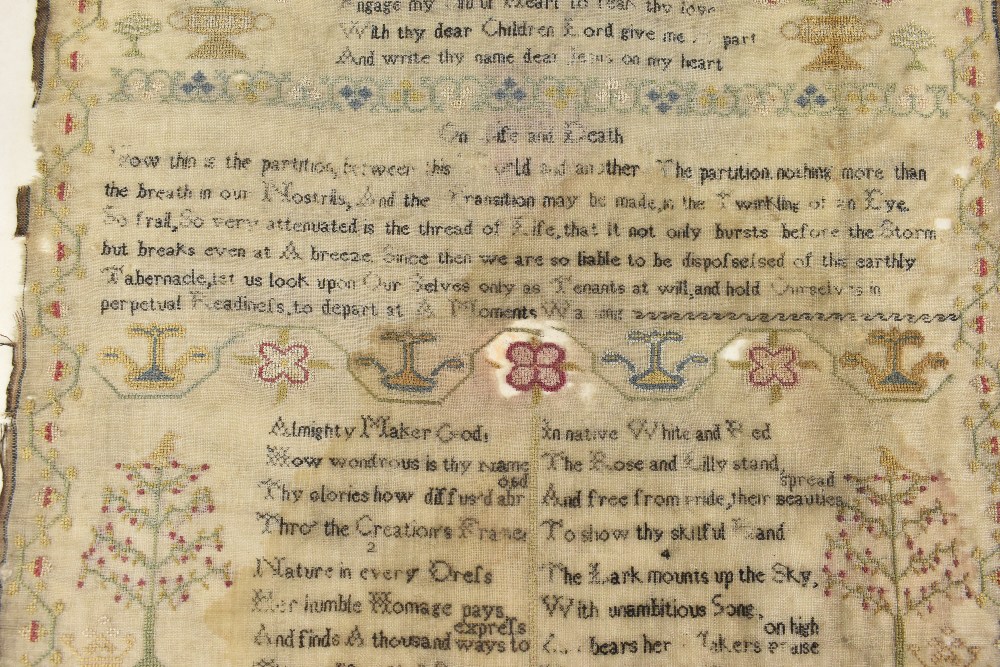 Engage my Heart to fear thy love
With thy dear Children Lord give me part
And write thy name dear Jesus on my heart
On Life and Death
How thin is the partition, between this World and another The partition nothing more than
the breath in our Nostrils, And the Transition may be made, in the Twinkling of an Eye.
So frail, So very attenuated is the thread of Life, that it not only bursts before the Storm
but breaks even at A breeze. Since then we are so liable to be dispofsefsed of this earthly
Tabernacle, let us look upon Our Selves only as Tenants at will, and hold Ourselves in
perpetual Readinefs, to depart at A Moments Warning
Almighty Maker God,
How wondrous is thy Name
oad
Thy glories how diffus'd abr
Thro' the Creation's Frame;
2
Nature in every Drefs
Her humble Homage pays,
exprefs
And finds A thousand ways to
In native White and Red
The Rose and Lilly stand,
spread
And free from pride, their beauties
To show thy skilful Hand
4
The Lark mounts up the Sky,
With unambitious Song,
on high
bears her Makers praise